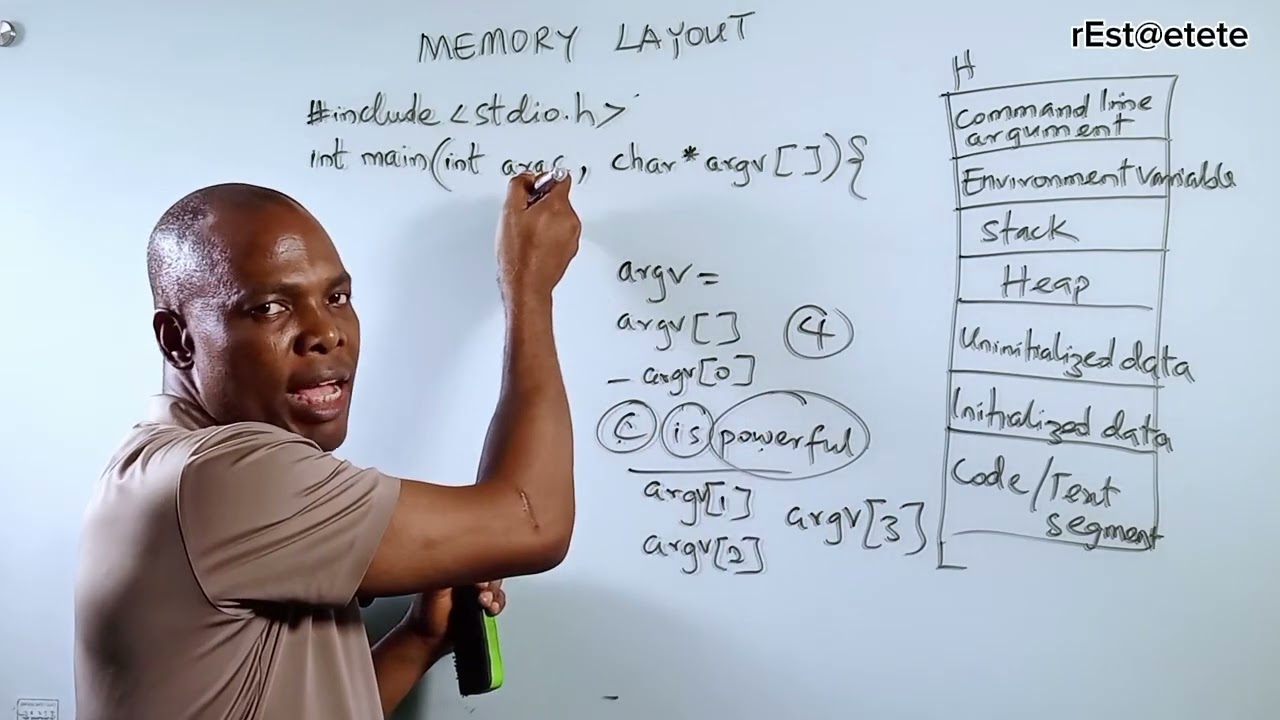 rEst@etete
MEMORY LAYOUT
#include <stdio.h>
int main(int argc, char*argv[]){
argv =
argv[]
4
- argv[0]
C is powerful
argv[1]
argv[2]
argv[3]
H
Command line
argument
Environment variable
Stack
Heap
Uninitialized data
Initialized data
Code/Text
segment
L